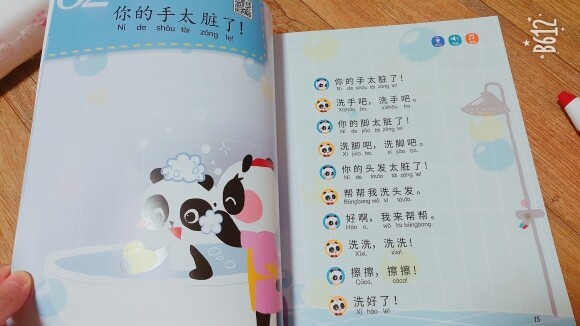 02
你的手太脏了！
Nǐ de shǒu tài zāng le!
你的手太脏了！
Nǐ de shǒu tài zāng le!
洗手吧，洗手吧。
Xǐshǒu ba, xǐshǒu ba.
你的脚太脏了！
Nǐ de jiǎo tài zāng le!
洗脚吧，洗脚吧。
Xǐ jiǎo ba, xǐ jiǎo ba.
你的头发太脏了！
Nǐ de tóufa tài zāng le!
帮帮我洗头发。
Bāngbang wǒ xǐ tóufa.
好啊，我来帮帮。
Hǎo a, wǒ lái bāngbang.
洗洗，洗洗！
Xǐxi, xǐxi!
擦擦，擦擦！
Cāca, cāca!
洗好了！
Xǐ hǎo le!
15
B612